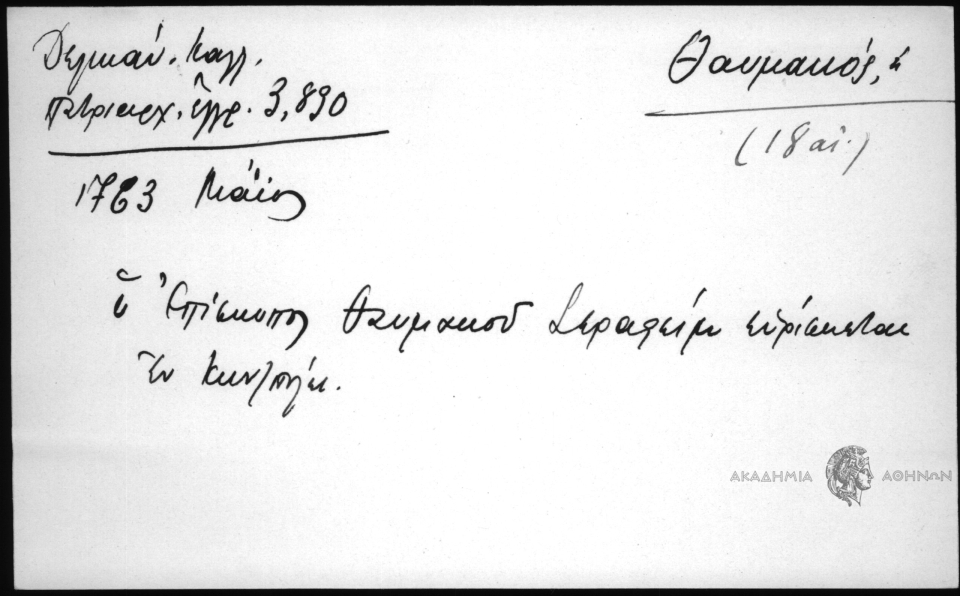 Δελικάν. Καλλ.
Πατριαρχ. ἔγγρ. 3,890
Θαυμακός, ὁ
(18 αἰ.)
1763 Μάϊος
ὁ Ἐπίσκοπος Θαυμακοῦ Σεραφείμ εὑρίσκεται
ἐν Κων/πόλει.
ΑΚΑΔΗΜΙΑ ΑΘΗΝΩΝ